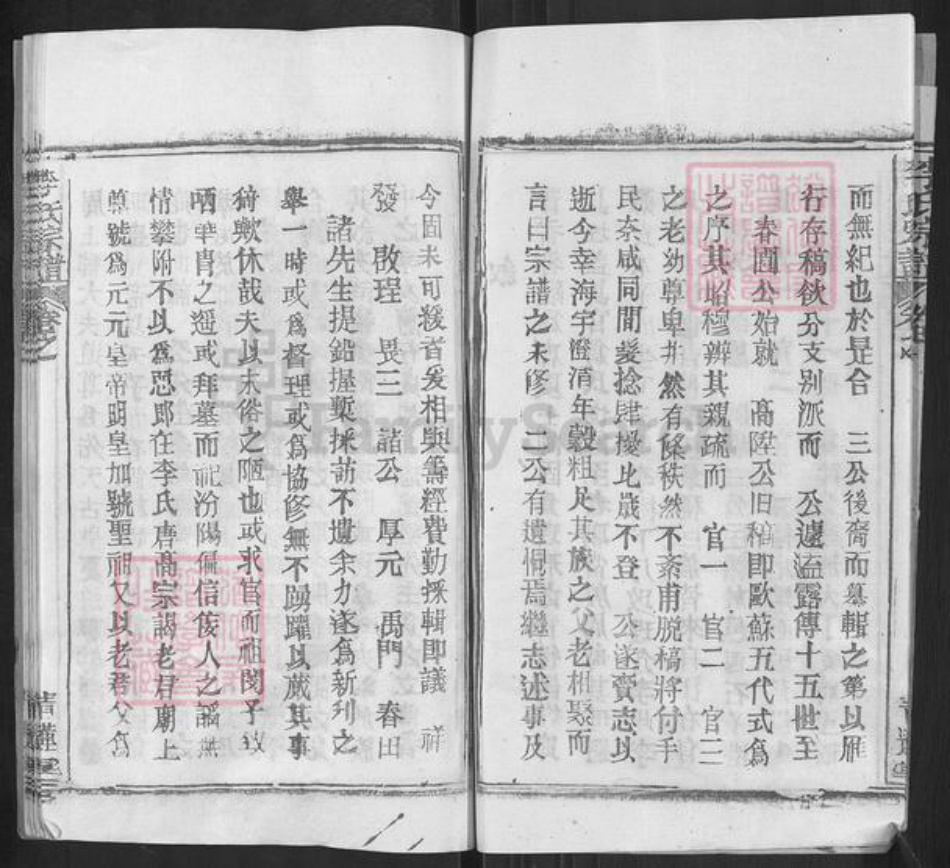 而無紀也於是合　三公後裔而纂輯之第以雁
行存稿欲分支别派而　公遽溘露傳十五世至
春圃公始就　高陞公旧稿即歐蘇五代式爲
之序其昭穆辨其親疏而　官一　官二　官三
之老幼尊卑井然有條秩然不紊甫脱稿將付手
民奈咸同間髮捻肆擾比歲不登　公遂賫志以
逝今幸海宇澄清年穀粗足其族之父老相聚而
言曰宗譜之未修　二公有遺恫焉繼志述事及
今固未可緩者爰相與籌經費勤採輯即議　祥
發　啟珵　畏三　諸公　厚元　禹門　春田
諸先生提鉛握槧採訪不遺余力遂爲新刋之
舉一時或爲督理或爲協修無不踴躍以蕆其事
猗歟休哉夫以末俗之陋也或求官而祖閔子致
哂華胄之遥或拜墓而祀汾陽偏信後人之譌無
情攀附不以爲怼耶在李氏唐高宗謁老君廟上
尊號爲元元皇帝明皇加號聖祖又以老君父爲
李氏宗譜
李氏宗譜
青蓮堂
FamilySearch